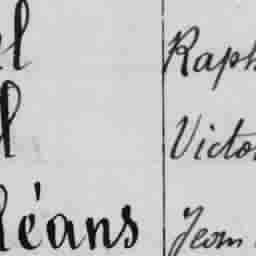 el Raph
d Victo
léans Jean